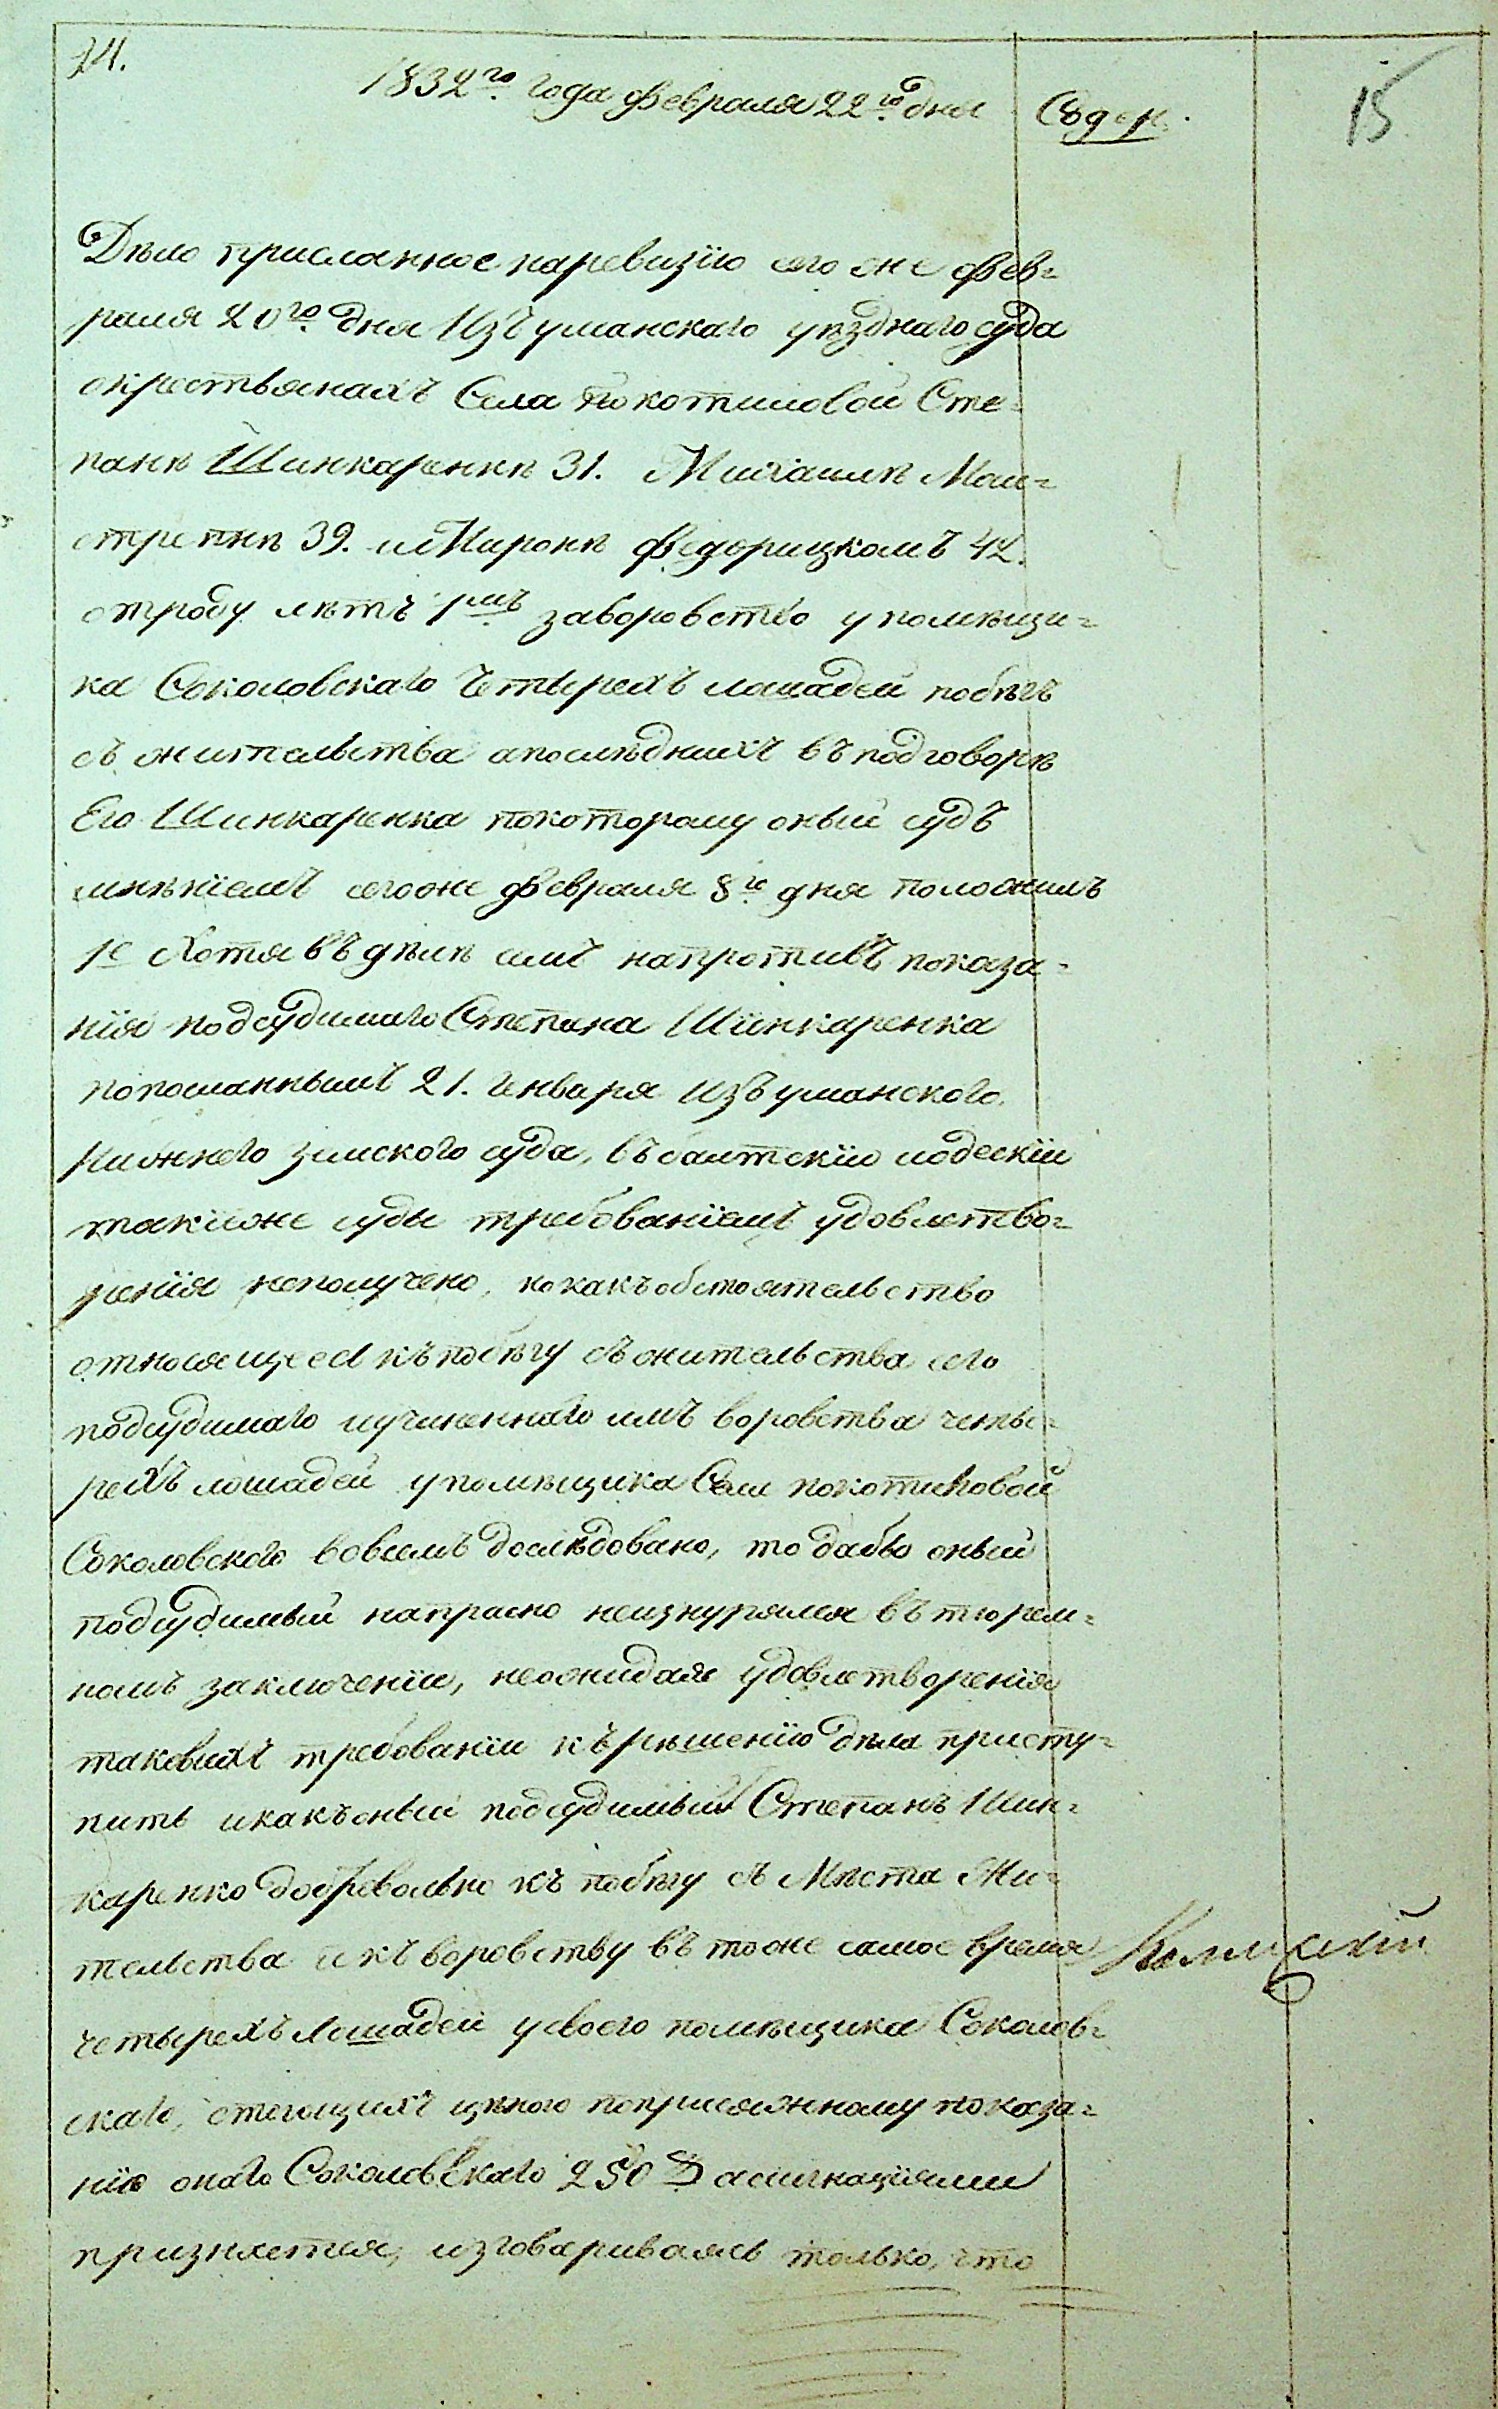 24.
1832го года февраля 22го дня
15
Дѣло присланное наревизію сего же фев=
раля 20го дня Изъ уманскаго уѣзднаго суда
окрестьянахъ Села покотиловой Сте=
панѣ Шинкаренкѣ 31. Михаилѣ Маи=
стренкѣ 39. и Миронѣ Федорицкомъ 42.
отроду лѣтъ 1мъ заворовство упомѣщи=
ка Соколовскаго Четырехъ лошадей побѣгъ
съ жительства апослѣднихъ въ подговорѣ
Его Шинкаренка покоторому оный судъ
мнѣніемъ сегоже февраля 8го дня положилъ
1е Хотя въ дѣлѣ симъ напротивъ показа=
нія подсудимаго Степана Шинкаренка
попосланнымъ 21. Генваря Изъ уманского
нижнего земского суда, въ балтскій иодескій
такіеже суды требованіемъ удовлетво=
ренія неполучено, но какъ обстоятельство
относящееся къ побѣгу съ жительства его
подсудимаго иучиненнаго имъ воровства четы=
рехъ лошадей упомѣщика Села покотиловой
Соколовского вовсемъ дослѣдовано, то дабы оный
подсудимый напрасно неизнурялся въ тюрем=
номъ заключеніи, неожидая удовлетворенія
таковыхъ требованіи къ рѣшенію дѣла присту=
пить икакъ оный подсудимый Степанъ Шин=
каренко добровольно къ побѣгу съ Мѣста Жи=
тельства и къ воровству въ тоже самое время
четырехъ Лошадей усвоего помѣщика Соколов=
скаго, стоющихъ цѣною поприсяжному показа=
нію онаго Соколовскаго 250 асигнаціями
признается, изговариваясь только, что